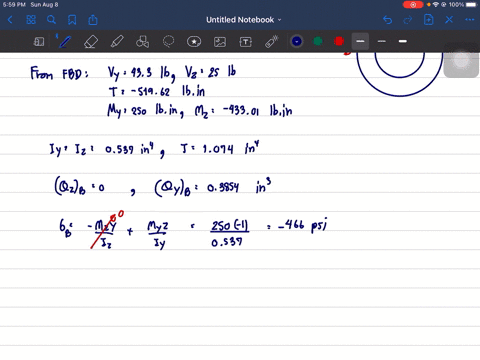 5:59 PM Sun Aug 8
100%
Untitled Notebook
From FBD: Vy = 43.3 lb, Vz = 25 lb
T = -519.62 lb.in
My = 250 lb.in, Mz = -433.01 lb.in
Iy = Iz = 0.537 in⁴, J = 1.074 in⁴
(Qz)B = 0 , (Qy)B = 0.3854 in³
σB = -Mzy/Iz 0 + Myz/Iy = 250(-1)/0.537 = -466 psi